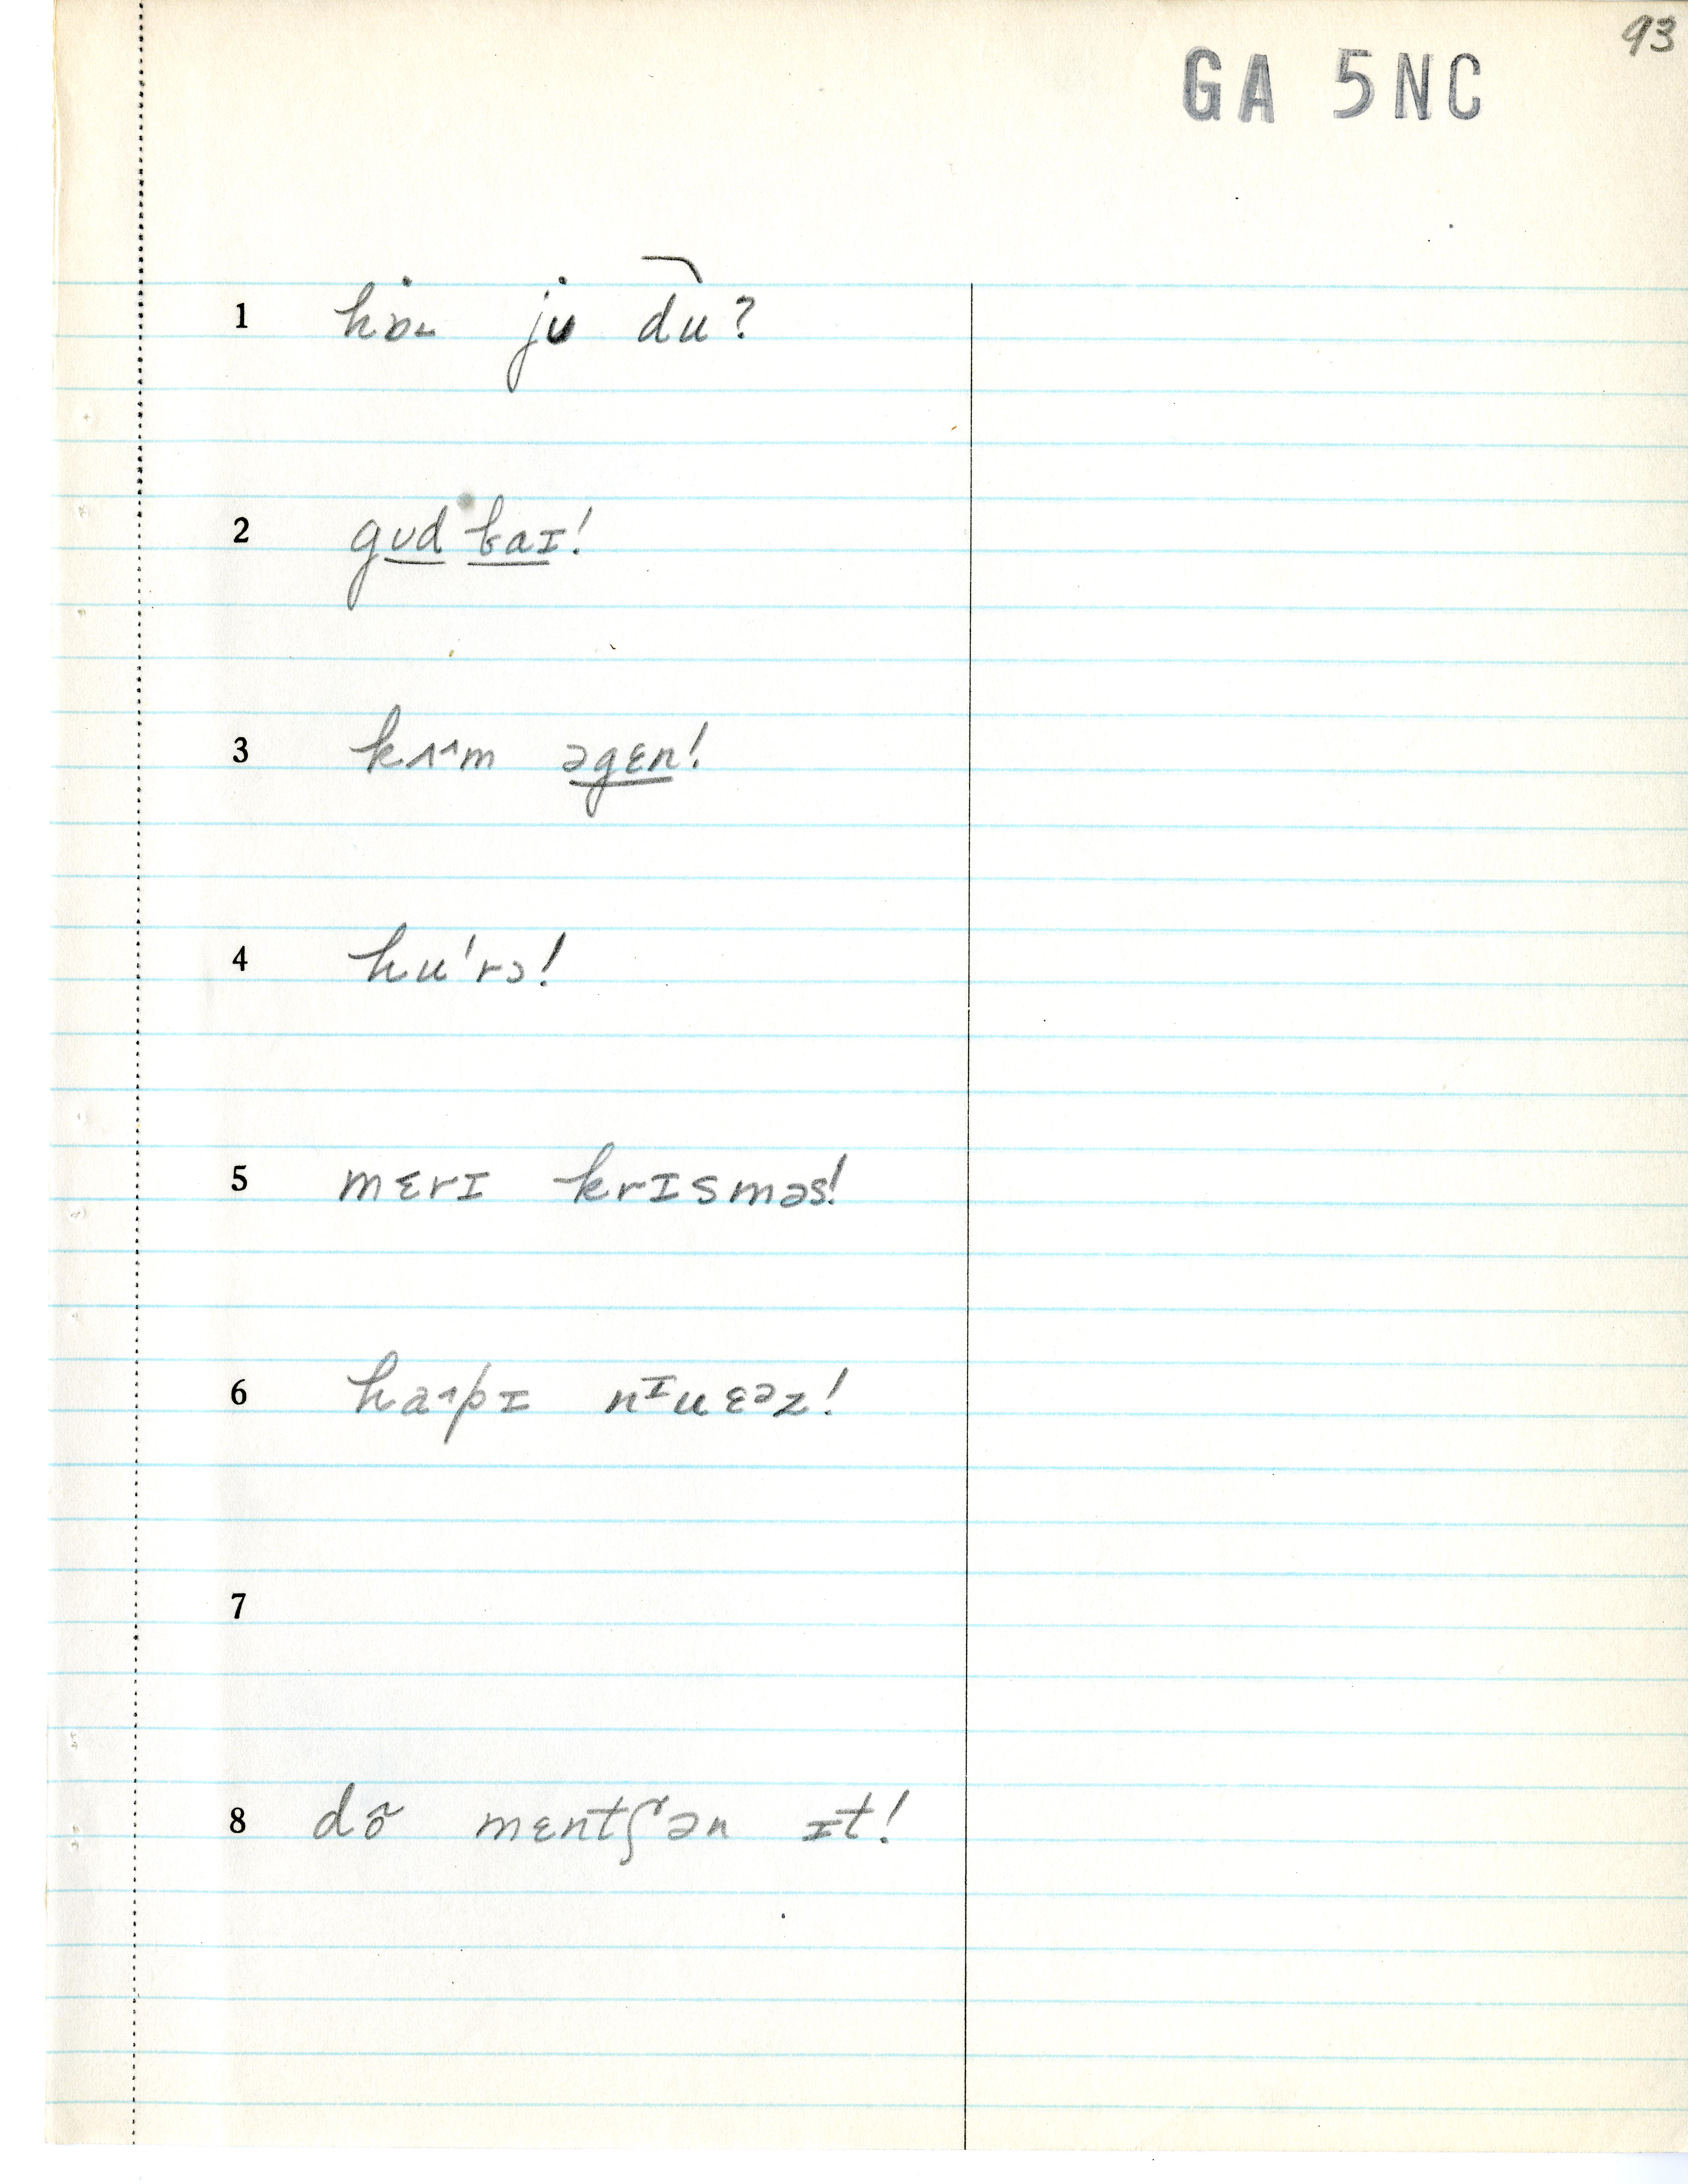 93
GA 5NC
1 ju du?
2 gʊd baɪ!
3 kʌ^m əgɛn!
4 hu'rɔ!
5 mɛrɪ krɪsməs!
6 ha^pɪ nᶦuɛᵊz!
7
8 dõ mɛntʃən ɪt!